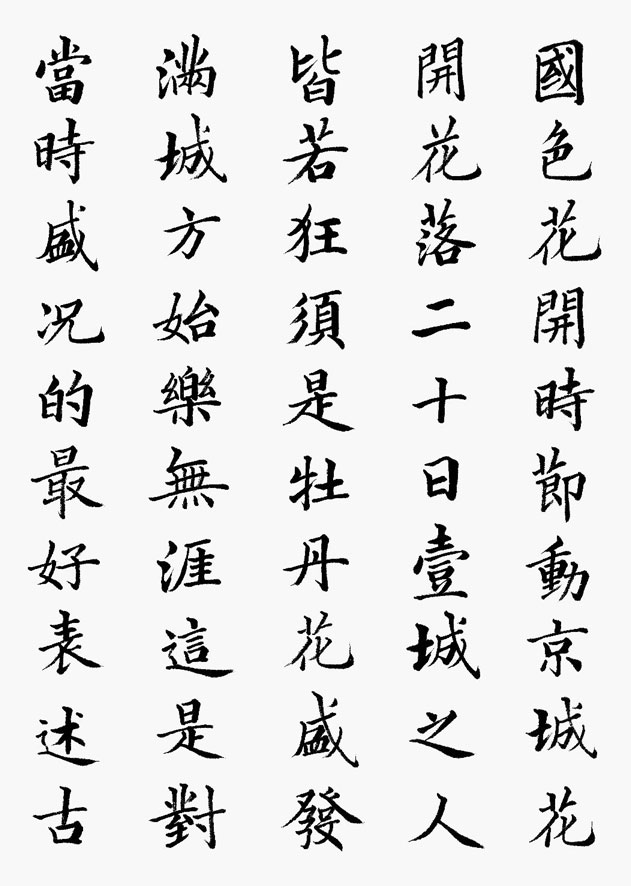 國色花開時節動京城花
開花落二十日壹城之人
皆若狂須是牡丹花盛發
滿城方始樂無涯這是對
當時盛况的最好表述古